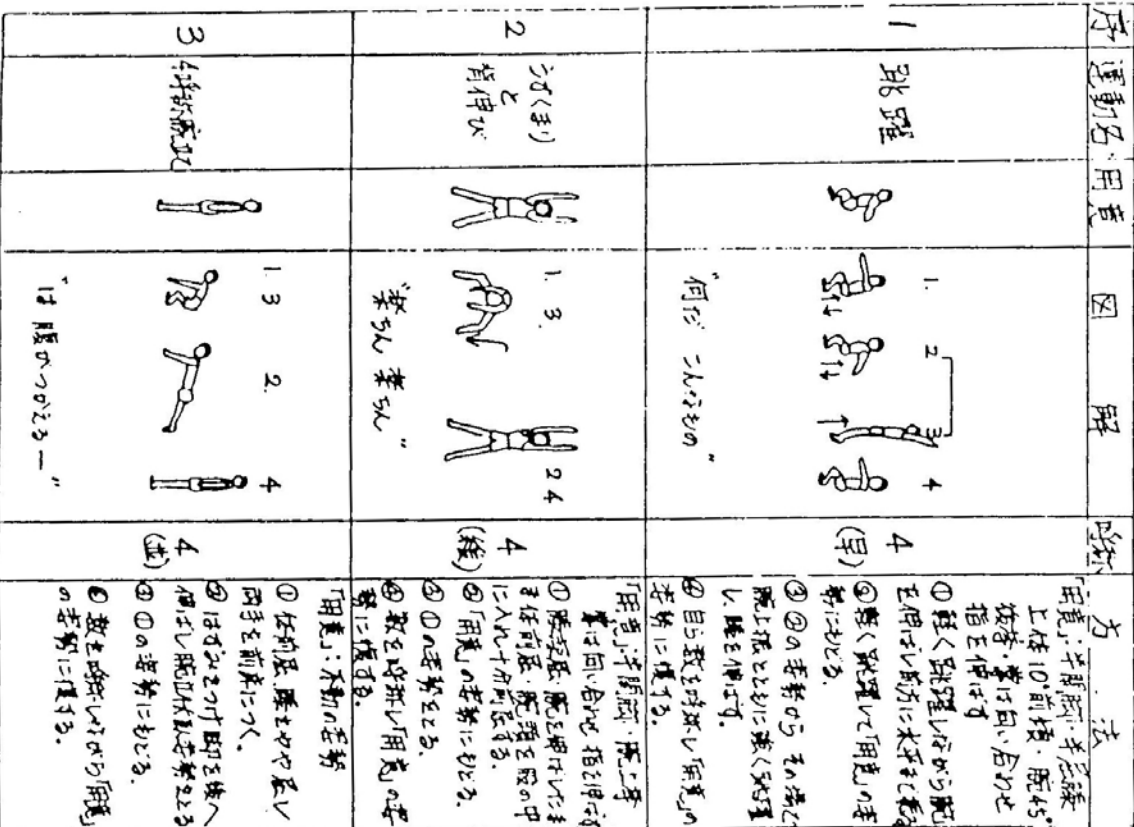 序
運動名
用意
図解
呼称
方法
1
跳躍
1.
2
3
4
"何だ こんなもの"
4
(早)
「用意」:半開脚・半屈膝
上体10°前傾・腕45°
後方・掌は向い合わせ
指を伸ばす
① 軽く跳躍しながら腕
を伸ばし前方に水平まで
②軽く跳躍して「用意」の姿
勢にもどる。
③②の姿勢から その場で
腕上振とともに強く跳躍
し、膝を伸ばす。
④ 自ら数を呼称し「用意」の
姿勢に復する。
2
うずくまり
と
背伸び
1. 3.
2 4
"楽ちん 楽ちん"
4
(緩)
「用意」:半開脚・腕上挙
掌は向い合わせ 指を伸ばす
① 膝半屈 腕を伸ばしたまま
体前屈・腕頭を股の中
に入れ十分前屈する。
②「用意」の姿勢にもどる。
③ ①の姿勢をとる。
④ 数を呼称し「用意」の姿
勢に復する。
3
1. 3
2.
4
"は 腹がつかえるー"
4
(並)
「用意」:不動の姿勢
① 体前屈 膝をやや屈し
両手を前床につく。
② はずみをつけ脚を後へ
伸ばし腕立伏せ姿勢をとる
③ ①の姿勢にもどる。
④ 数を呼称しながら「用意」
の姿勢に復する。